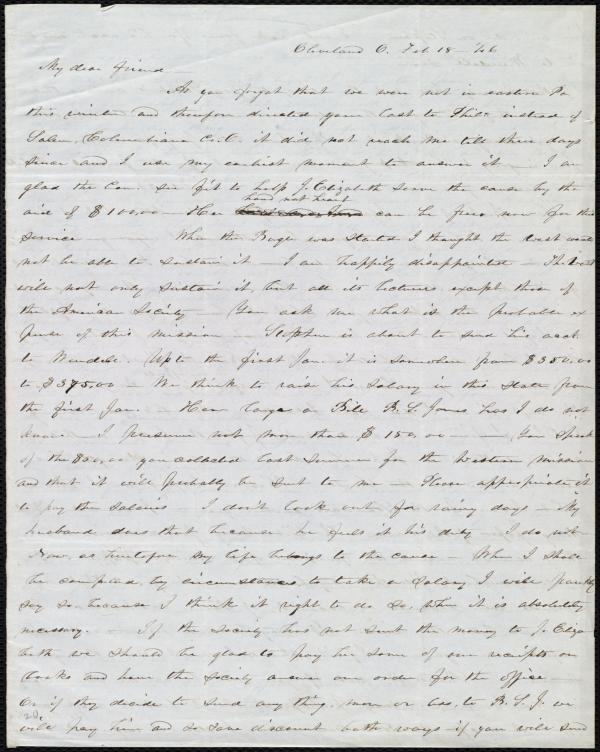 Cleveland O. Feb 18 - 46
My dear friend
As you forgot that we were not in eastern Pa
this winter and therefore directed your last to Phila instead of
Salem, Columbiana Co. O. it did not reach me till three days
since and I use my earliest moment to answer it — I am
glad the Com. see fit to help J. Elizabeth serve the cause by the
hand not heart
aid of $100.00 — Her can be free now for this
service — When the Bugle was started I thought the west would
not be able to sustain it — I am happily disappointed — The West
will not only sustain it, but all its lecturers except those of
the American Society — You ask me what is the probable ex
pense of this mission — Stephen is about to send his acct.
to Wendell. Up to the first Jan. it is somewhere from $350.00
to $375.00 — We think to raise his salary in this State from
the first Jan. — How large a Bill B. S. Jones has I do not
know. I presume not more than $150.00 — You speak
of the $50.00 you collected last summer for the western mission
and that it will probably be sent to me — Please appropriate it
to pay the salaries I don't look out for rainy days — My
husband does that because he feels it his duty — I do not
Now, as heretofore my life belongs to the cause — When I shall
be compelled by circumstances to take a salary I will frankly
say so because I think it right to do so, when it is absolutely
necessary. — If the Society has not sent the money to J. Eliza
beth we should be glad to pay her some of our receipts on
books and have the Society answer our order for the office —
Or if they decide to send any thing, more or less, to B. S. J. we
will pay him and so save discount both ways if you will send